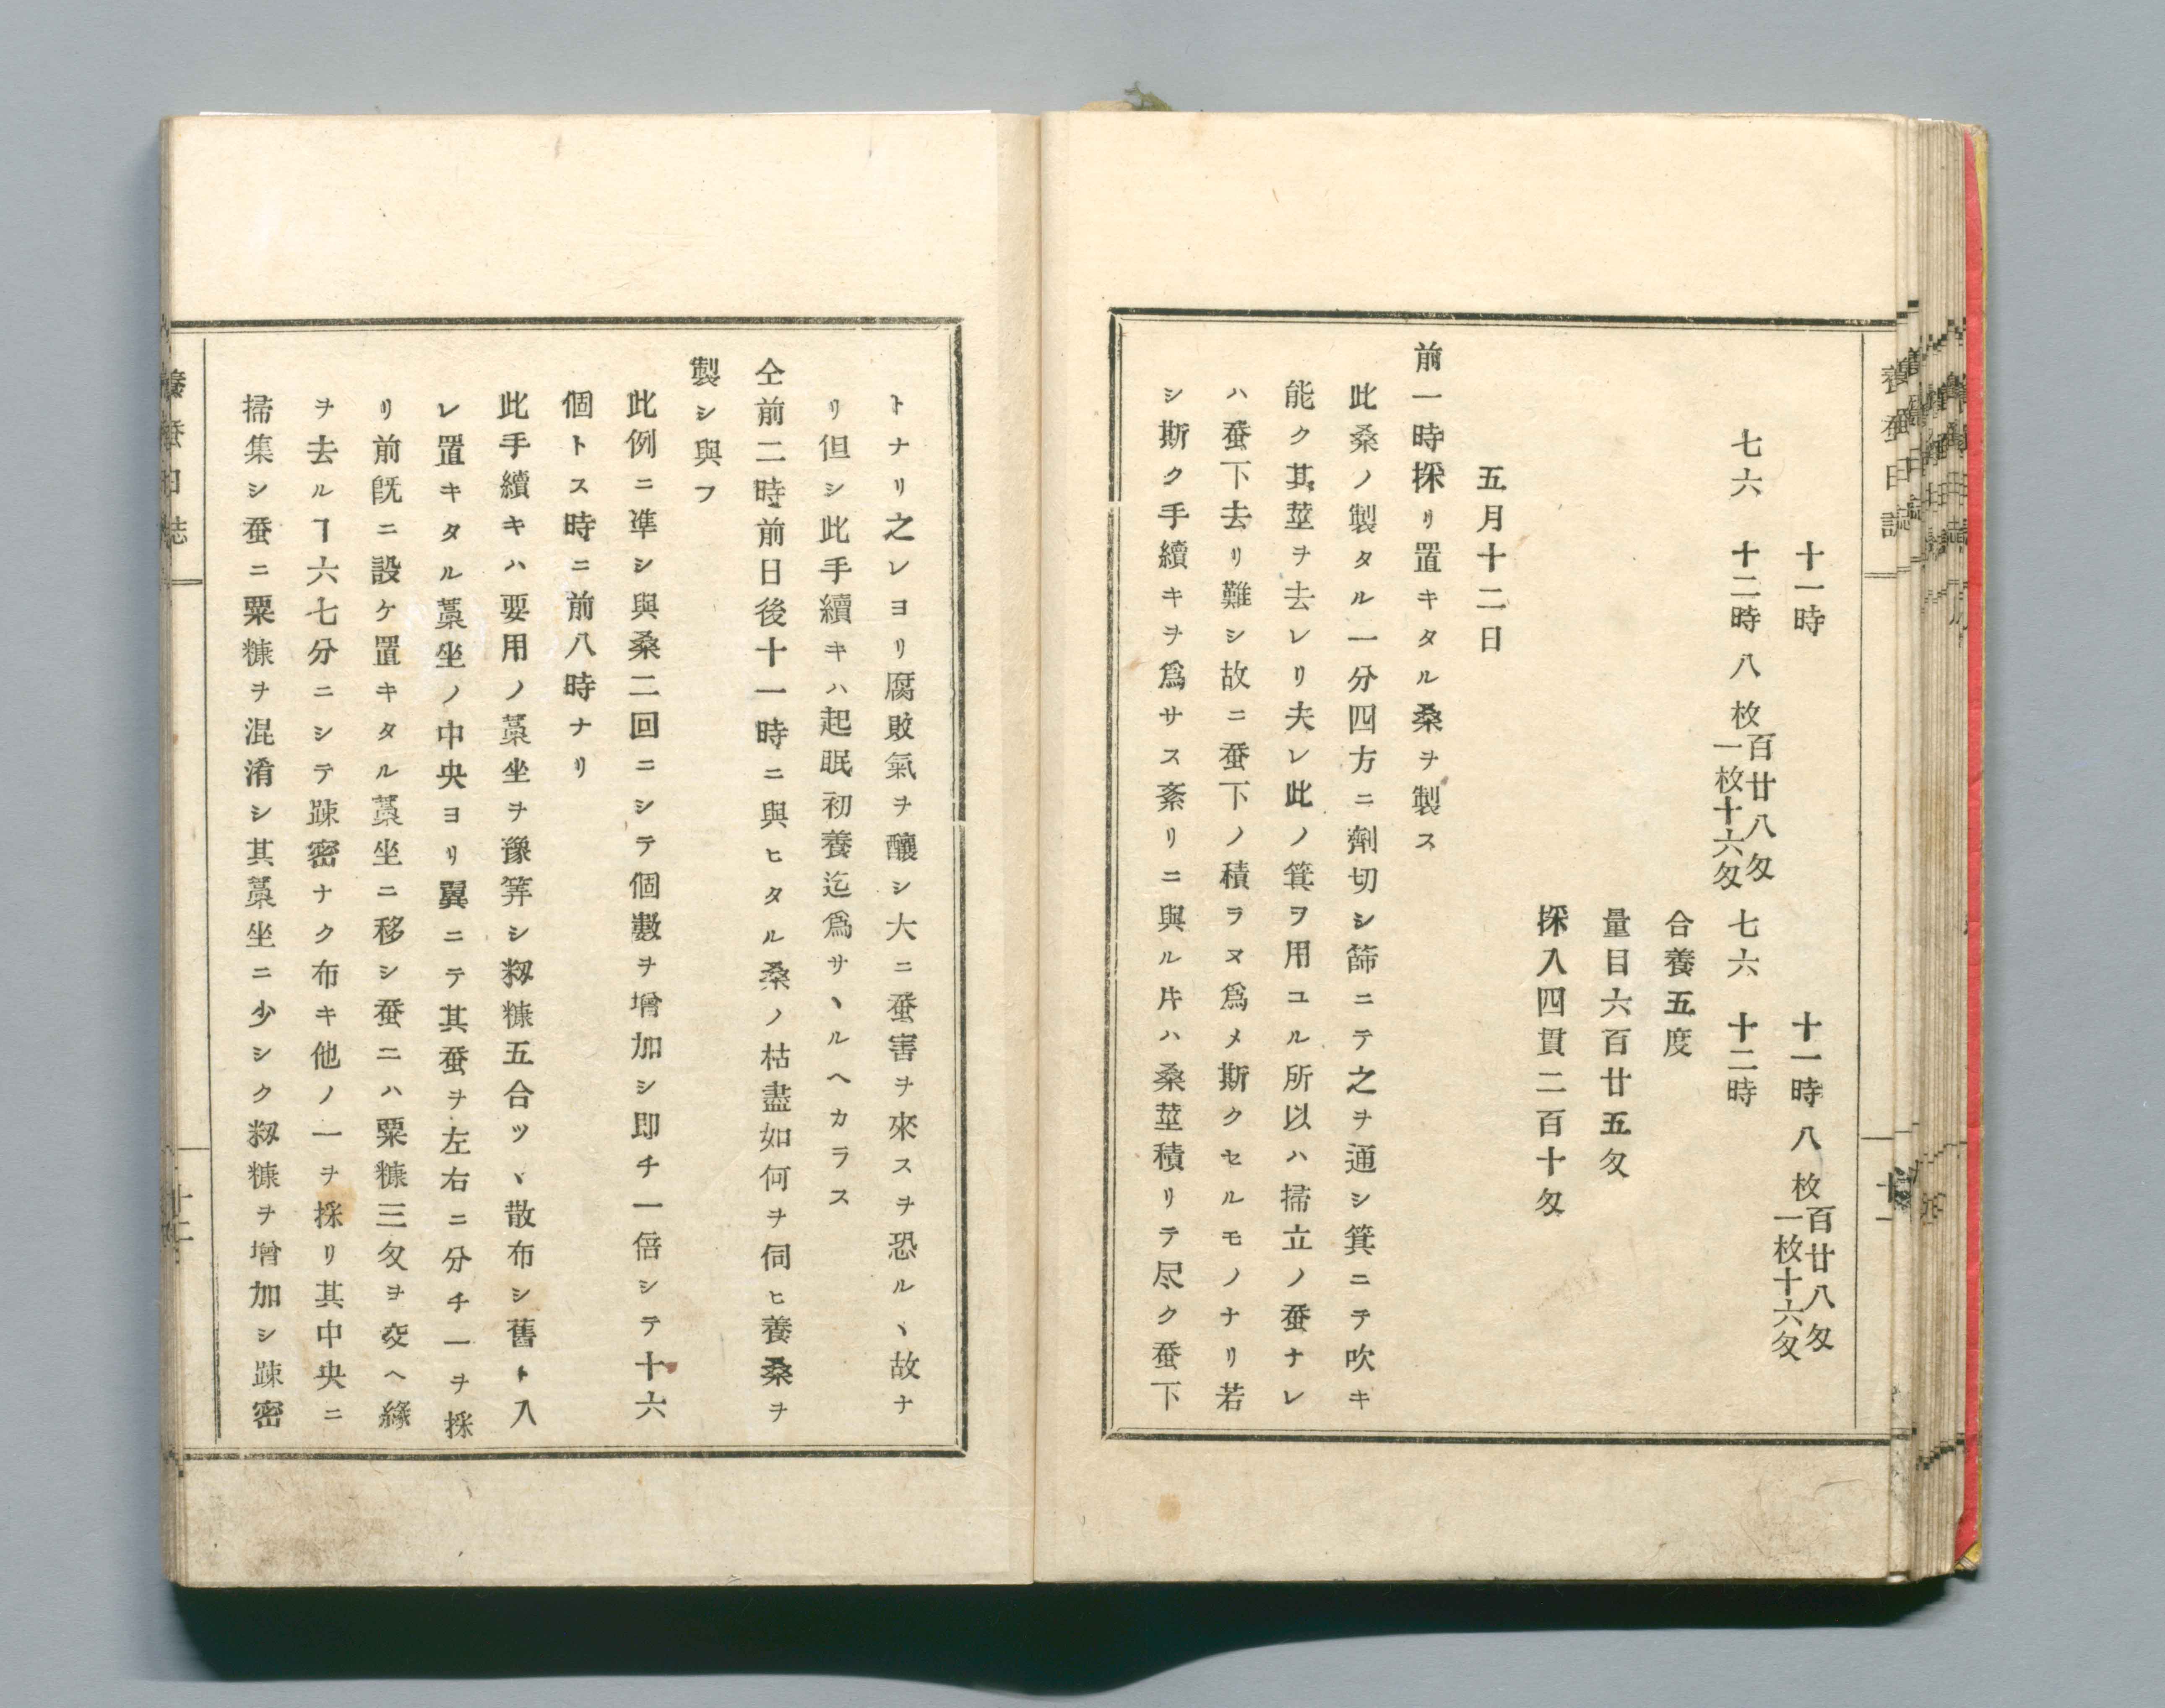 養蚕日誌
十一
十一時
十一時 八枚 百廿八匁
一枚十六匁
七六 十二時 八枚 百廿八匁
一枚十六匁
七六 十二時
合養五度
量目六百廿五匁
採入四貫二百十匁
五月十二日
前一時採リ置キタル桑ヲ製ス
此桑ノ製タル一分四方ニ劑切シ篩ニテ之ヲ通シ箕ニテ吹キ
能ク其莖ヲ去レリ夫レ此ノ箕ヲ用ユル所以ハ掃立ノ蚕ナレ
ハ蚕下去リ難シ故ニ蚕下ノ積ラヌ爲メ斯クセルモノナリ若
シ斯ク手續キヲ爲サス紊リニ與ル㪽ハ桑莖積リテ尽ク蚕下
トナリ之レヨリ腐敗氣ヲ釀シ大ニ蚕害ヲ來スヲ恐ルヽ故ナ
リ但シ此手續キハ起眠初養迄爲サヽルヘカラス
仝前二時前日後十一時ニ與ヒタル桑ノ枯盡如何ヲ伺ヒ養桑ヲ
製シ與フ
此例ニ準シ與桑二回ニシテ個數ヲ增加シ即チ一倍シテ十六
個トス時ニ前八時ナリ
此手續キハ要用ノ藁坐ヲ豫筭シ籾糠五合ツヽ散布シ舊ト入
レ置キタル藁坐ノ中央ヨリ翼ニテ其蚕ヲ左右ニ分チ一ヲ採
リ前旣ニ設ケ置キタル藁坐ニ移シ蚕ニハ粟糠三匁ヲ交ヘ緣
ヲ去ルヿ六七分ニシテ踈密ナク布キ他ノ一ヲ採リ其中央ニ
掃集シ蚕ニ粟糠ヲ混淆シ其藁坐ニ少シク籾糠ヲ增加シ踈密
養蚕日誌
十二